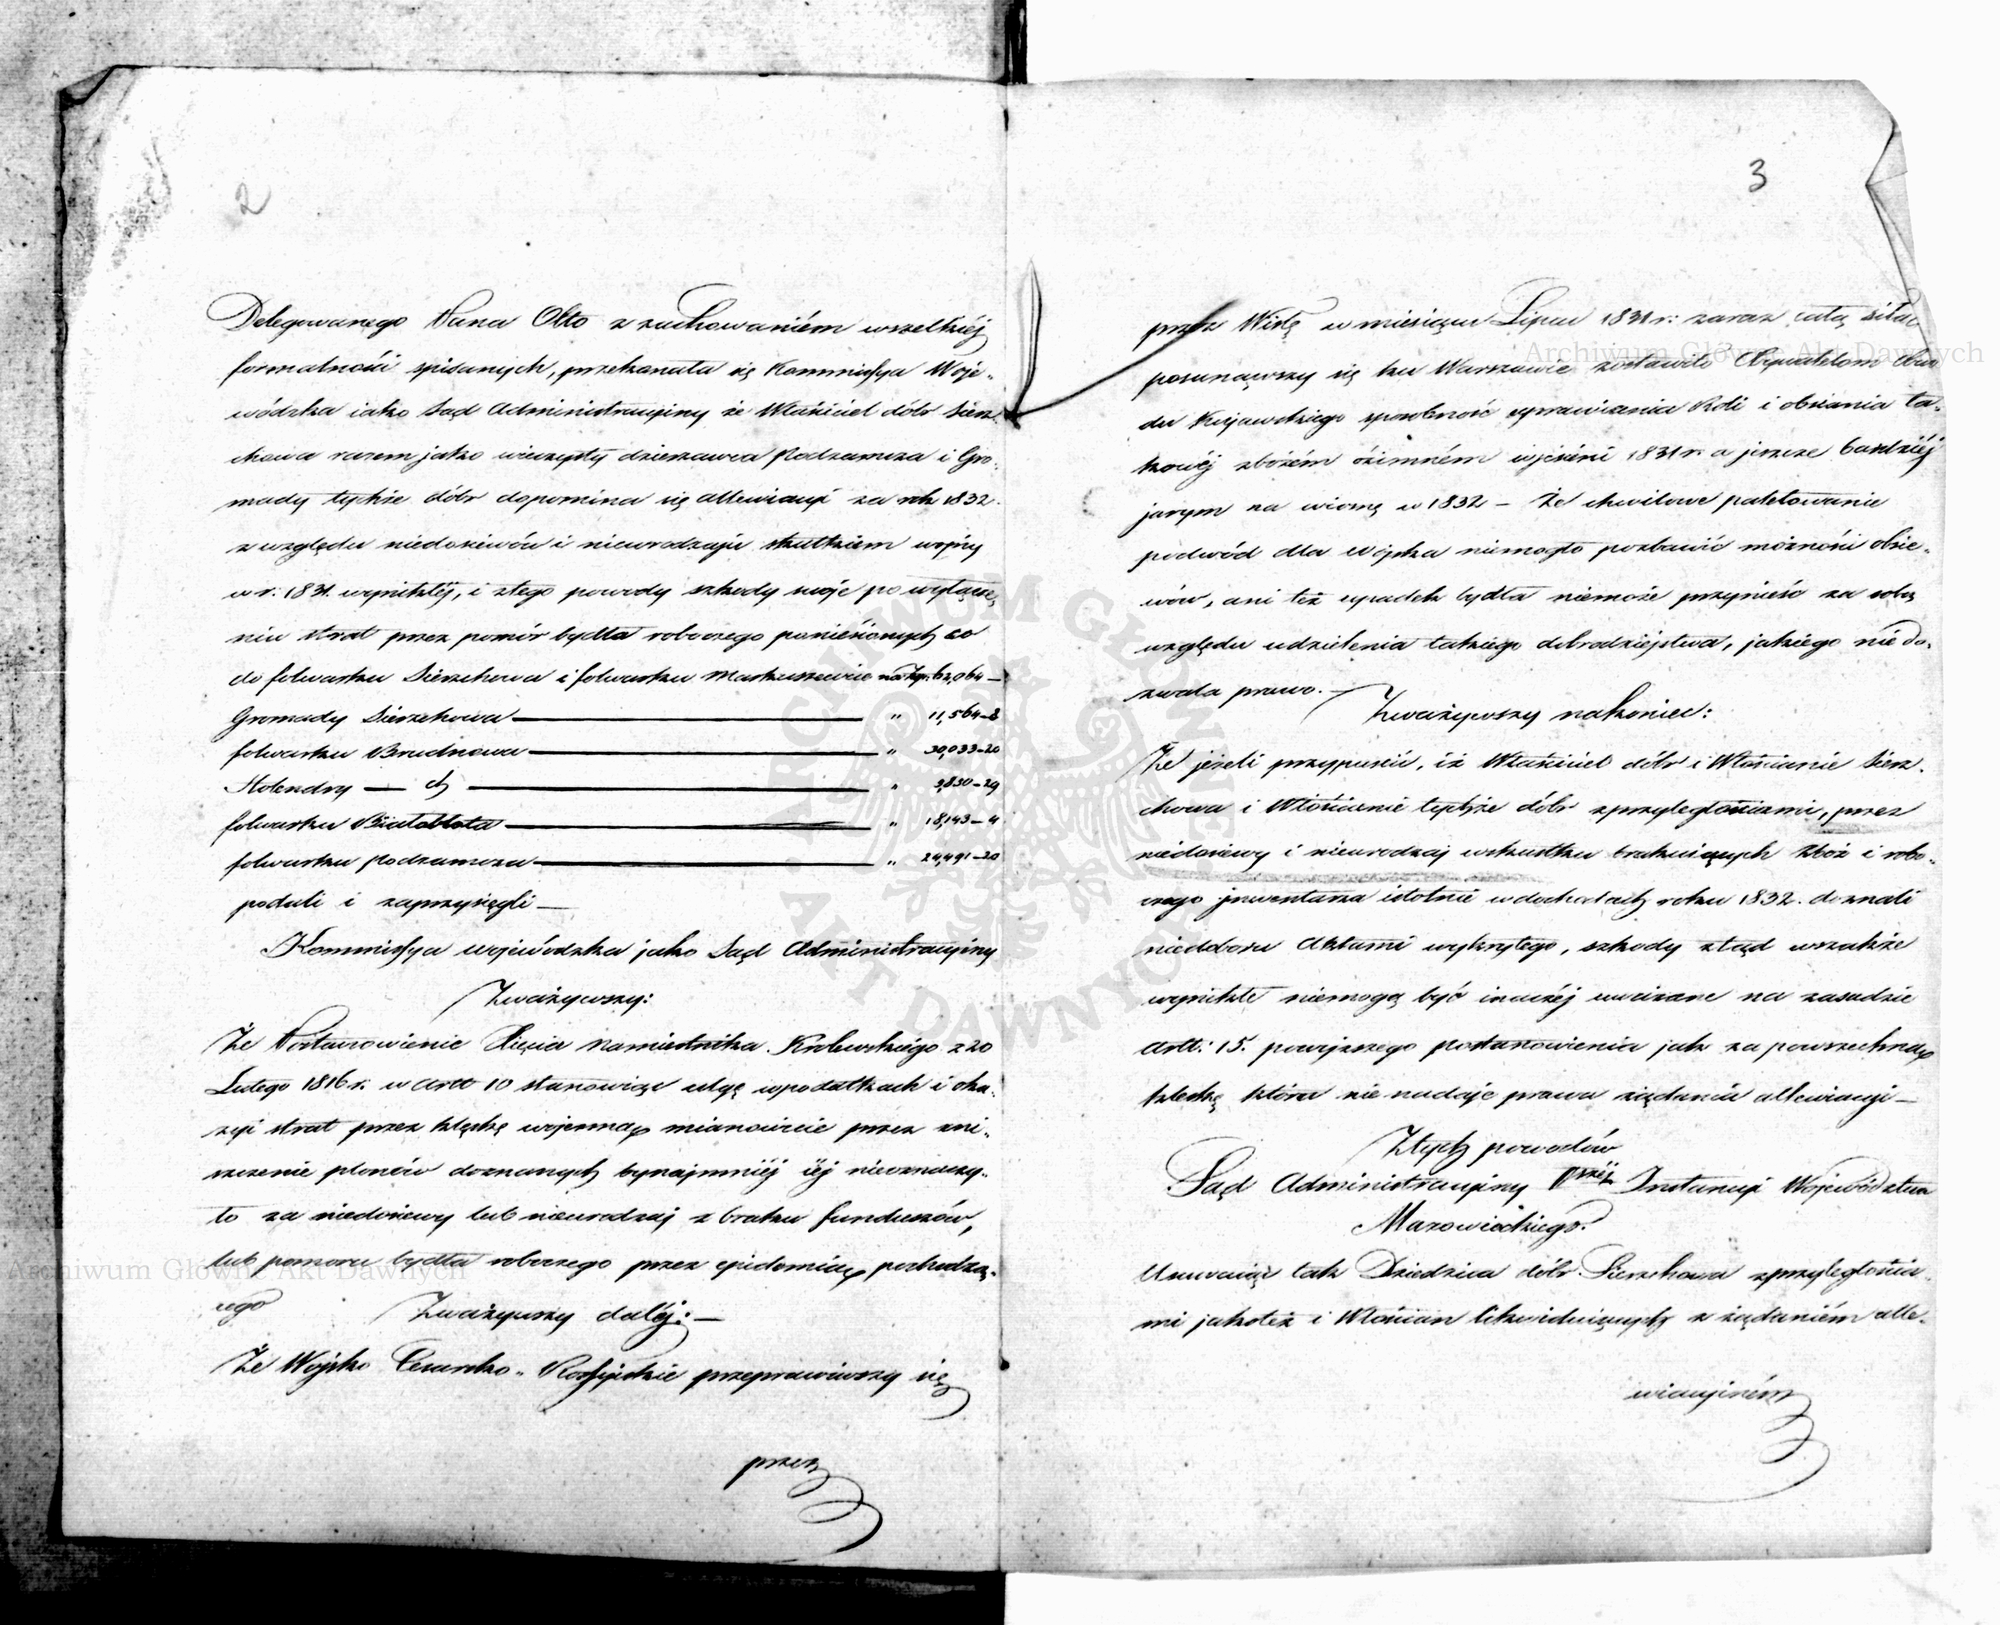 2
Delegowanego Pana Otto z zachowaniém wszelkiéj
formalności spisanych, przekonała się Kommissya Woje-
wódzka iako Sąd Administracyiny że Właściciel dóbr Sierz-
chowa razem jako wieczysty dzierzawca Podzamcza i Gro-
mady tychże dóbr dopomina się allewiacyi za rok 1832.
z względu niedosiewów i nieurodzaju skutkiem wojny
w r. 1831. wynikłéj, i ztego powody szkody swoje po wyłącze-
niu strat przez pomór bydła roboczego poniésionych co
do folwarku Sierzchowa i folwarku na Złp. 62,064 —
Gromady Sierzchowa — " 11,564-8
folwarku Brudnowa — " 30,033-20
Holendry — dt — " 3,830-29
folwarku Białobłota — " 18,143-4
folwarku Podzamcza — " 24,491-20
podali i zaprzysięgli —
Kommissya wojewódzka jako Sąd Administracyiny
Zważywszy:
Że Postanowienie Xięcia Namiestnika Krolewskiego z 20
Lutego 1816 r. w Artt 10 stanowiąc ulgę w podatkach i oka-
zyi strat przez klęskę wojenną mianowicie przez zni-
szczenie plonów doznanych bynajmniéj iéj nieoznaczy-
ło za niedosiewy lub nieurodzaj z braku funduszów,
lub pomoru bydła roboczego przez epidemią pochodzą-
cego Zważywszy daléj: —
Że Wojsko Cesarsko-Rossyiskie przeprawiwszy się
przez
3
przez Wisłę w miesiącu Lipcu 1831 r: zaraz całą siłą
posunąwszy się ku Warszawie zostawiło Obywatelom Obwo
du Kujawskiego sposobność uprawienia Roli i obsiania ta-
kowéj zbożem ozimném wjesieni 1831 r. a jeszcze bardziéj
jarym na wiosnę w 1832 — Że chwilowe pakowanie
podwód dla wojska niemogło pozbawić możności obsie-
wów, ani też upadek bydła niemoże przynieść za sobą
względu udzielenia takiego dobrodziejstwa, jakiego niedo-
zwala prawo. —
Zważywszy nakoniec:
Że jeżeli przypuścić, iż Właściciel dóbr i Włościanie Sierz-
chowa i Włościanie tychże dóbr z przyległościami, przez
niedosiewy i nieurodzaj wskutku brakuiących Zboż i robo-
czego inwentarza istotnie w dochodach roku 1832. doznali
niedoboru Aktami wykrytego, szkody ztąd wszakże
wynikłe niemogą być inaczéj uważane na zasadzie
Artt: 15. powyższego postanowienia jak za powszechną
klęskę która nie nadaje prawa żądania allewiacyi —
Ztych powodów
Sąd Administracyiny Iwszéj Instancyi Województwa
Mazowieckiego.
Usuwaiąc tak Dziedzica dóbr Sierzchowa z przyległościa-
mi jakoteż i Włościan likwiduiących z żądaniém alle-
wiacyiném
Archiwum Główne Akt Dawnych
Archiwum Główne Akt Dawnych
ARCHIWUM GŁÓWNE AKT DAWNYCH